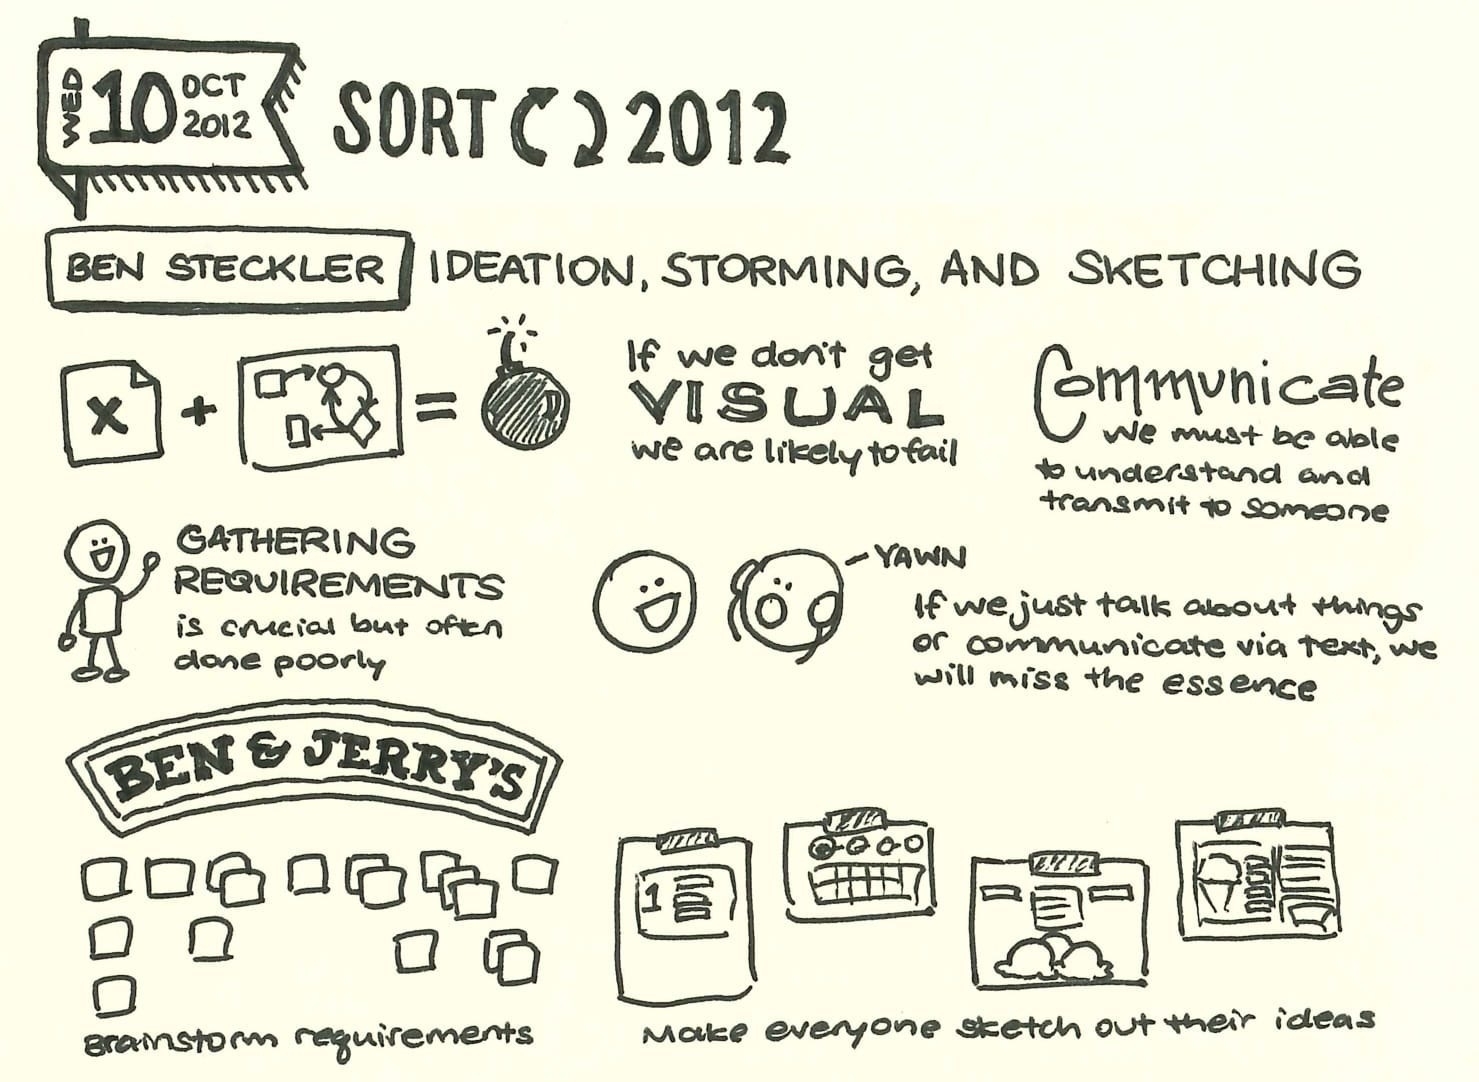 WED 10 OCT 2012
SORT 2012
BEN STECKLER IDEATION, STORMING, AND SKETCHING
X + =
If we don't get
VISUAL
we are likely to fail
Communicate
We must be able
to understand and
transmit to someone
GATHERING
REQUIREMENTS
is crucial but often
done poorly
YAWN
If we just talk about things
or communicate via text, we
will miss the essence
BEN & JERRY'S
1
Brainstorm requirements
Make everyone sketch out their ideas